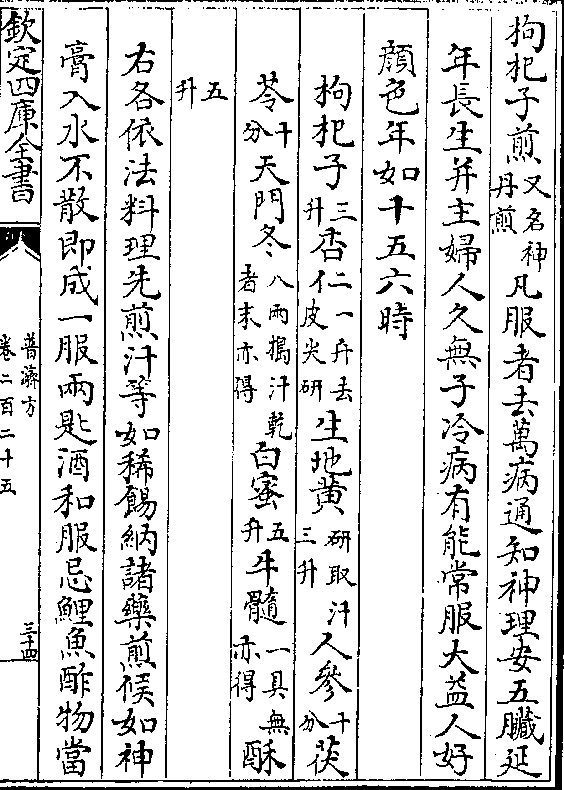 枸杞子煎又名神丹煎凡服者去萬病通知神理安五臟延
年長生并主婦人久無子冷病有能常服大益人好
顔色年如十五六時
枸杞子三升杏仁一升去皮尖研二生地黄研取汁三升人參十分茯
苓十分天門冬八兩搗汁乾者末亦得白蜜五升牛髓一具無亦得酥
五升
右各依法料理先煎汁等如稀餳納諸藥煎候如神
膏入水不散即成一服兩匙酒和服忌鯉魚酢物當
欽定四庫全書
普濟方
卷二百二十五
三十四